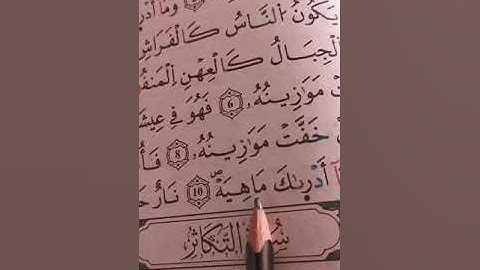 يَكُونُ النَّاسُ كَالْفَرَاشِ
الْجِبَالُ كَالْعِهْنِ الْمَنفُ
مَوَازِينُهُ ٦ فَهُوَ فِي عِيشَ
خَفَّتْ مَوَازِينُهُ ٨ فَأُ
أَدْرَىٰكَ مَاهِيَهْ ١٠ نَارٌ حَا
سُورَةُ التَّكَاثُرِ